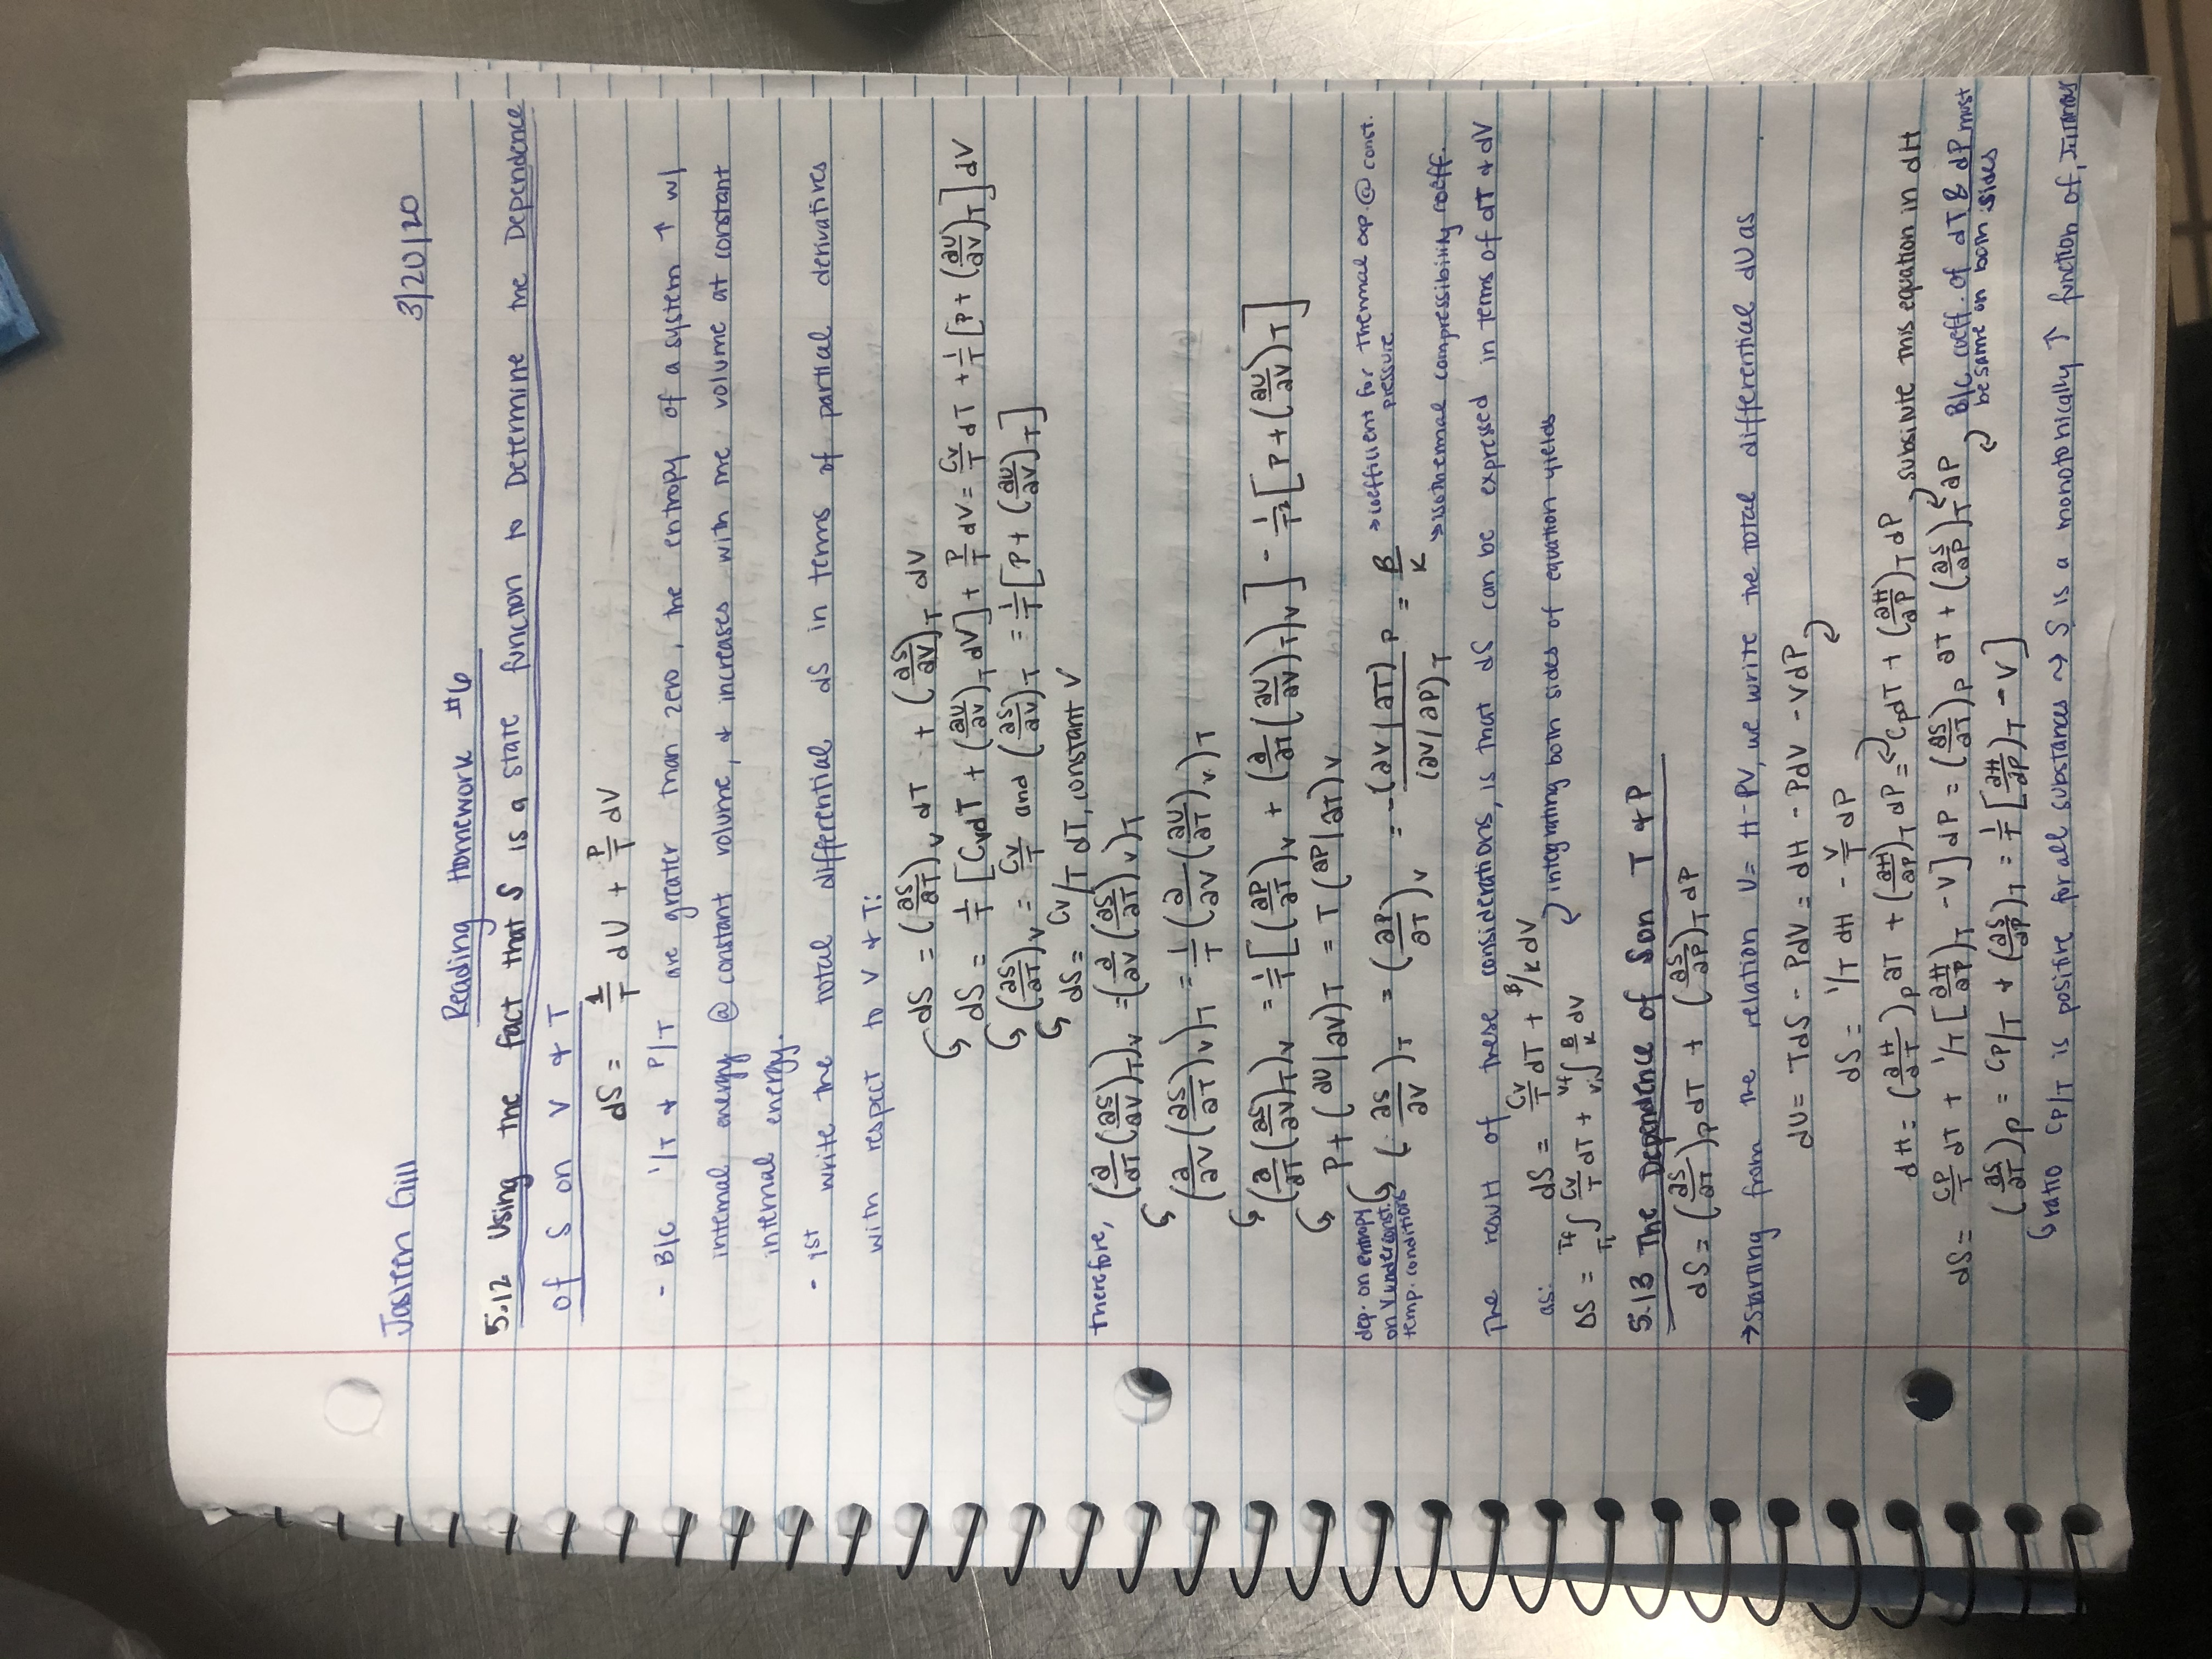 Jasleen Gill 3/20/20
Reading Homework #6
5.12 Using the fact that S is a state function to Determine the Dependence
of S on V & T
dS = 1/T dU + P/T dV
- B/C 1/T & P/T are greater than zero, the entropy of a system ↑ w/
internal energy @ constant volume, & increases with the volume at constant
internal energy.
- 1st write the total differential dS in terms of partial derivatives
with respect to V & T:
dS = (∂S/∂T)_V dT + (∂S/∂V)_T dV
dS = 1/T [CvdT + (∂U/∂V)_T dV] + P/T dV = Cv/T dT + 1/T [P + (∂U/∂V)_T] dV
(∂S/∂T)_V = Cv/T and (∂S/∂V)_T = 1/T [P + (∂U/∂V)_T]
dS = Cv/T dT, constant V
therefore, (∂/∂T (∂S/∂V)_T)_V = (∂/∂V (∂S/∂T)_V)_T
(∂/∂V (∂S/∂T)_V)_T = 1/T (∂/∂V (∂U/∂T)_V)_T
(∂/∂T (∂S/∂V)_T)_V = 1/T [(∂P/∂T)_V + (∂/∂T (∂U/∂V)_T)_V] - 1/T² [P + (∂U/∂V)_T]
P + (∂U/∂V)_T = T (∂P/∂T)_V
dep. on entropy
on V under const.
temp. conditions
(∂S/∂V)_T = (∂P/∂T)_V = -(∂V/∂T)_P / (∂V/∂P)_T = B/K
→ coefficient for thermal exp. @ const.
pressure
→ isothermal compressibility coeff.
The result of these considerations, is that dS can be expressed in terms of dT & dV
as: dS = Cv/T dT + B/K dV
integrating both sides of equation yields
ΔS = Tf Ti ∫ Cv/T dT + Vf Vi ∫ B/K dV
5.13 The Dependence of S on T & P
dS = (∂S/∂T)_P dT + (∂S/∂P)_T dP
→ Starting from the relation U = H-PV, we write the total differential dU as
dU = TdS - PdV = dH - PdV - VdP
dS = 1/T dH - V/T dP
dH = (∂H/∂T)_P dT + (∂H/∂P)_T dP = CpdT + (∂H/∂P)_T dP, subsitute this equation in dH
dS = CP/T dT + 1/T [∂H/∂P)_T - V] dP = (∂S/∂T)_P dT + (∂S/∂P)_T dP, B/C coeff. of dT & dP must
be same on both sides
(∂S/∂T)_P = CP/T & (∂S/∂P)_T = 1/T [∂H/∂P)_T - V]
ratio CP/T is positive for all substances → S is a monotonically ↑ function of